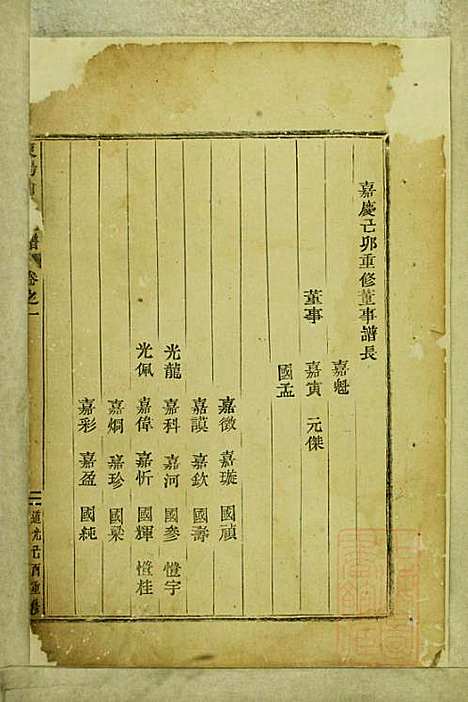 嘉慶己卯重修董事譜長
嘉魁
董事 嘉寅 元傑
國孟
嘉徵 嘉璇 國頑
嘉謨 嘉欽 國壽
光龍 嘉科 嘉河 國參 愷宇
光佩 嘉偉 嘉忻 國輝 愷桂
嘉炯 嘉珍 國梁
嘉彩 嘉盈 國純
譜 卷之一
道光己酉重修